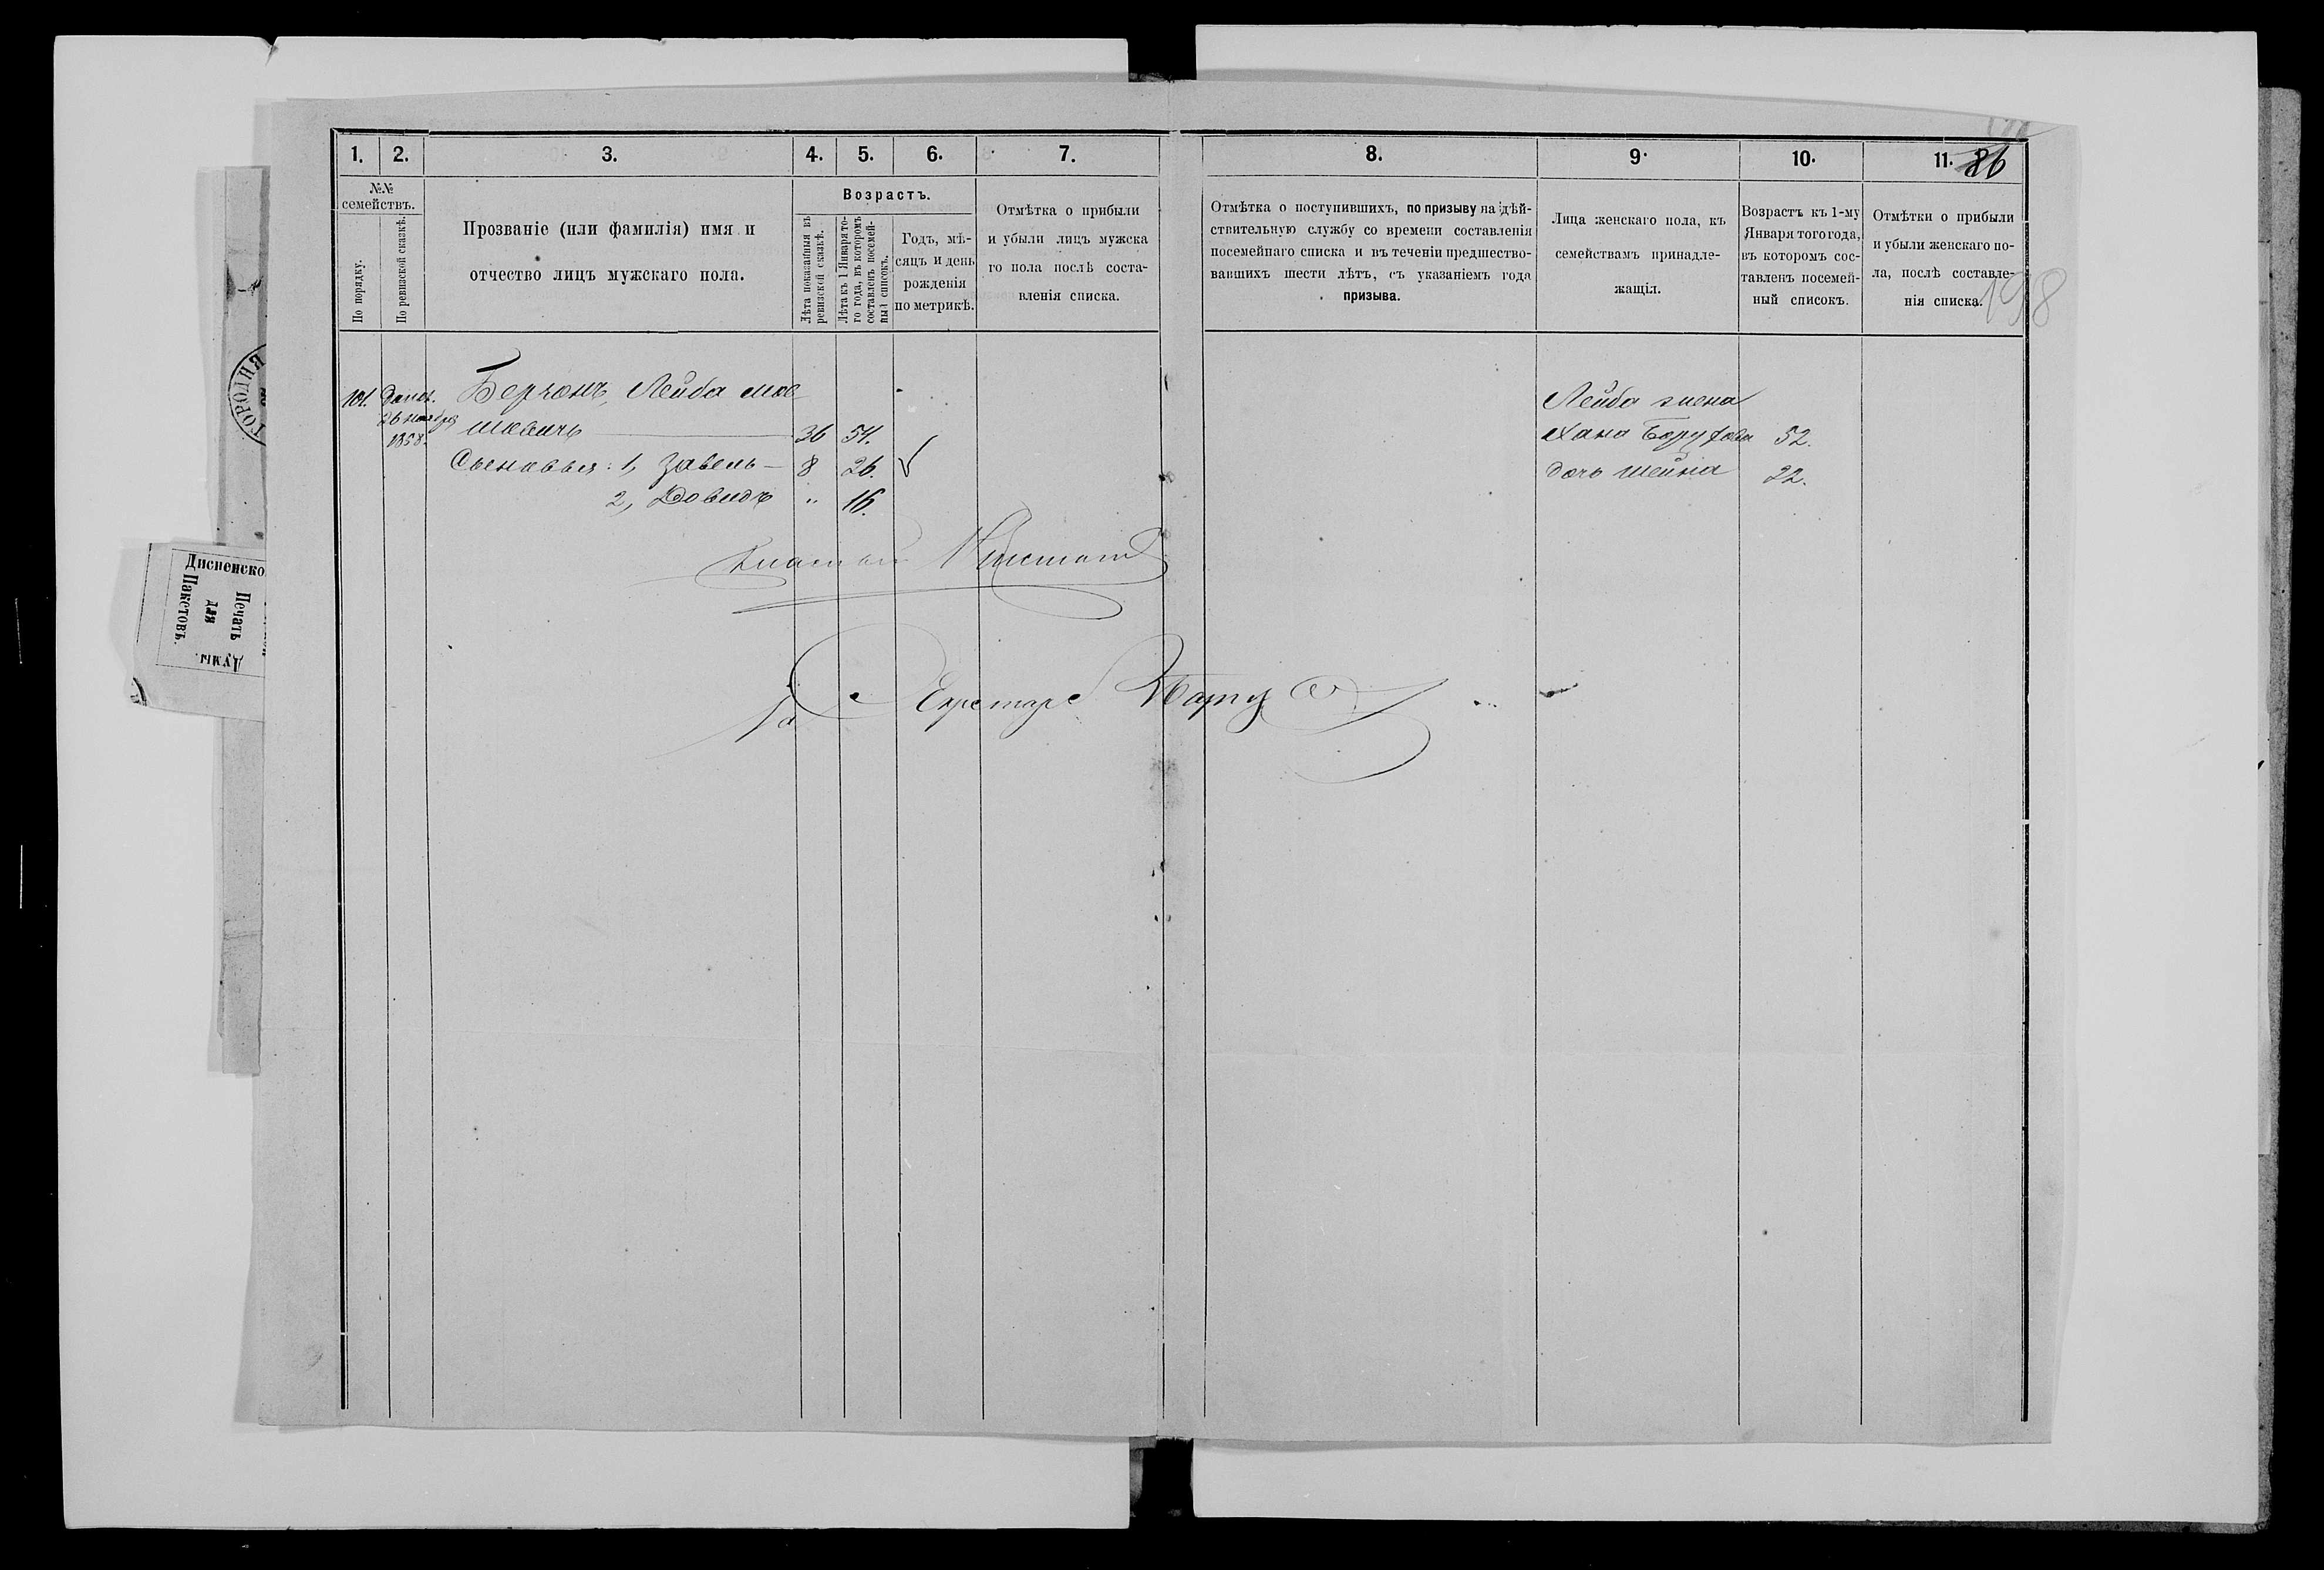 1. 2. 3. 4. 5. 6. 7. 8. 9. 10. 11. 86
№№ семействъ.
По порядку.
По ревизской сказкѣ.
Прозваніе (или фамилія) имя и
отчество лицъ мужскаго пола.
Возрастъ.
Лѣта показанныя въ
ревизской сказкѣ.
Лѣта къ 1 Января то-
го года, въ которомъ
составленъ посемей-
ный списокъ.
Годъ, мѣ-
сяцъ и день
рожденія
по метрикѣ.
Отмѣтка о прибыли
и убыли лицъ мужска
го пола послѣ соста-
вленія списка.
Отмѣтка о поступившихъ, по призыву на дѣй-
ствительную службу со времени составленія
посемейнаго списка и въ теченіи предшество-
вавшихъ шести лѣтъ, съ указаніемъ года
призыва.
Лица женскаго пола, къ
семействамъ принадле-
жащія.
Возрастъ къ 1-му
Января того года,
въ которомъ сос-
тавленъ посемей-
ный списокъ.
Отмѣтки о прибыли
и убыли женскаго по-
ла, послѣ составле-
нія списка.
198
101. Допол. Берконъ, Лейба Мов
26 ноября
1858. шовичъ 36 54.
Сыновья: 1, Завель 8 26.
2, Довидъ " 16.
Лейба жена
Хана Борухова 52.
дочь Шейна 22.
Секретарь
Дисненско
Печать
для
Пакетовъ.
Думы.
ГОРОД